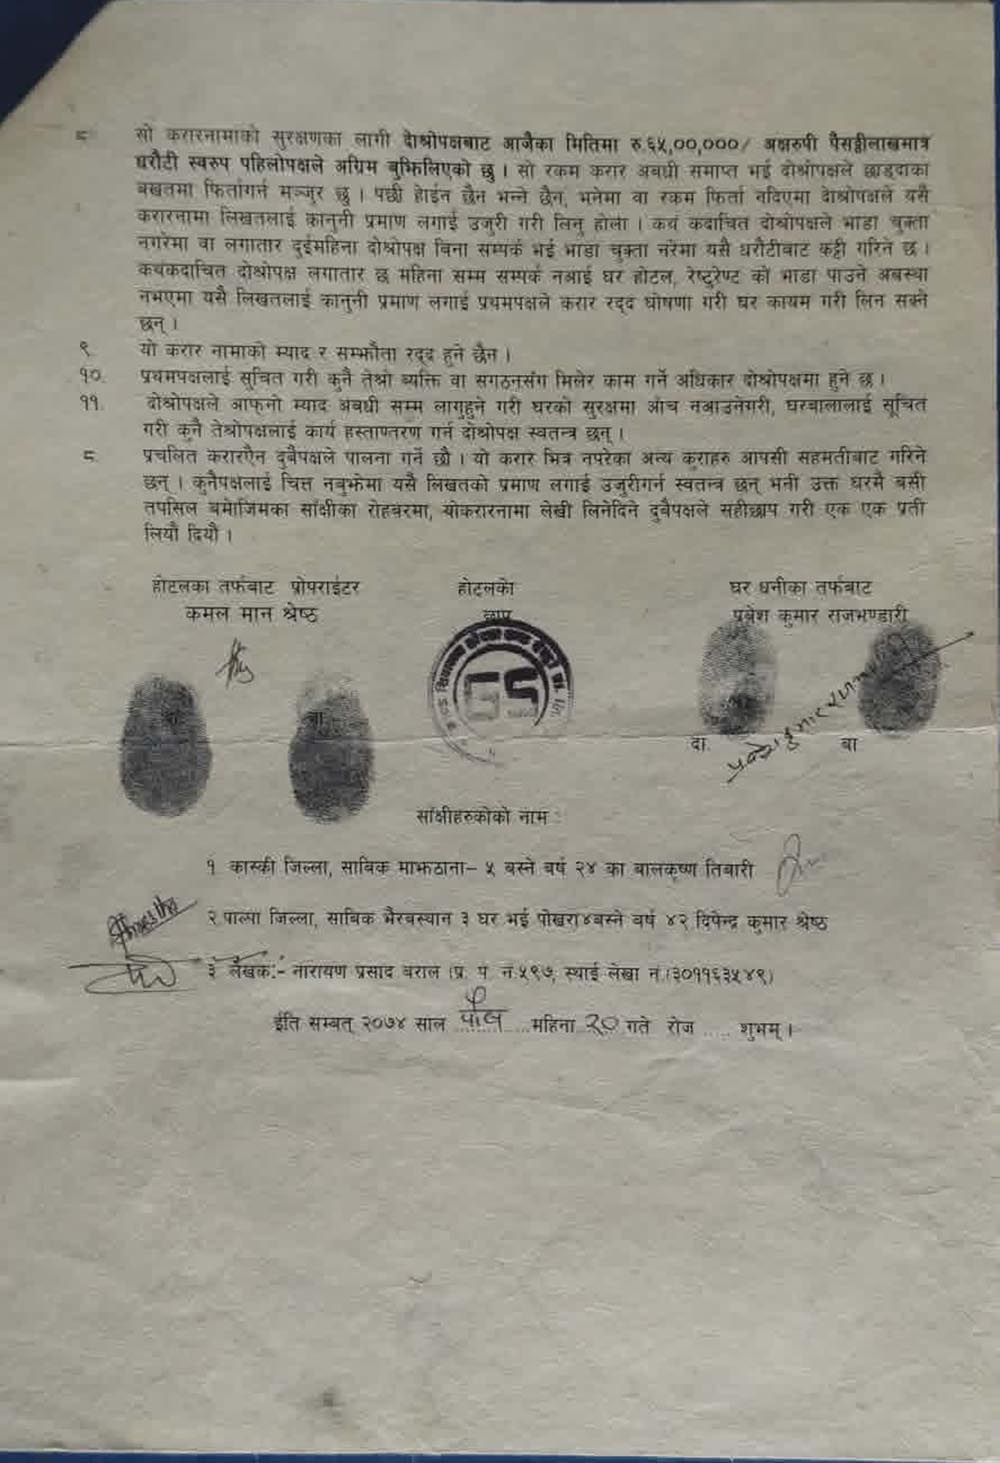 ८ सो करारनामाको सुरक्षणका लागी दोश्रोपक्षबाट आजैका मितिमा रु.६५,००,०००/ अक्षरुपी पैसठ्ठीलाखमात्र
धरौटी स्वरुप पहिलोपक्षले अग्रिम बुझिलिएको छु । सो रकम करार अबधी समाप्त भई दोश्रोपक्षले छाड्दाका
बखतमा फिर्तागर्न मञ्जुर छु । पछी होईन छैन भन्ने छैन, भनेमा वा रकम फिर्ता नदिएमा दोश्रोपक्षले यसै
करारनामा लिखतलाई कानुनी प्रमाण लगाई उजुरी गरी लिनु होला । कथं कदाचित दोश्रोपक्षले भाडा चुक्ता
नगरेमा वा लगातार दुईमहिना दोश्रोपक्ष बिना सम्पर्क भई भाडा चुक्ता नरेमा यसै धरौटीबाट कट्टी गरिने छ ।
कथंकदाचित दोश्रोपक्ष लगातार छ महिना सम्म सम्पर्क नआई घर होटल, रेष्टुरेण्ट को भाडा पाउने अबस्था
नभएमा यसै लिखतलाई कानुनी प्रमाण लगाई प्रथमपक्षले करार रद्द घोषणा गरी घर कायम गरी लिन सक्ने
छन् ।
९ यो करार नामाको म्याद र सम्झौता रद्द हुने छैन ।
१०. प्रथमपक्षलाई सुचित गरी कुनै तेश्रो ब्यक्ति वा सगठनसंग मिलेर काम गर्ने अधिकार दोश्रोपक्षमा हुने छ ।
११. दोश्रोपक्षले आफ्नो म्याद अबधी सम्म लागुहुने गरी घरको सुरक्षमा आँच नआउनेगरी, घरबालालाई सूचित
गरी कुनै तेश्रोपक्षलाई कार्य हस्ताण्तरण गर्न दोश्रोपक्ष स्वतन्त्र छन् ।
८ प्रचलित करारऐन दुबैपक्षले पालना गर्ने छौ । यो करार भित्र नपरेका अन्य कुराहरु आपसी सहमतीबाट गरिने
छन् । कुनैपक्षलाई चित्त नबुझेमा यसै लिखतको प्रमाण लगाई उजुरीगर्न स्वतन्त्र छन् भनी उक्त घरमै बसी
तपसिल बमोजिमका साँक्षीका रोहबरमा, योकरारनामा लेखी लिनेदिने दुबैपक्षले सहीछाप गरी एक एक प्रती
लियौं दियौं ।
होटलका तर्फबाट प्रोपराईटर होटलको घर धनीका तर्फबाट
कमल मान श्रेष्ठ छाप प्रबेश कुमार राजभण्डारी
GS
दा. बा
प्रबेश कुमार
साँक्षीहरुकोको नाम :
१ कास्की जिल्ला, साबिक माझठाना- ५ बस्ने बर्ष २४ का बालकृष्ण तिबारी
Shrestha
२.पाल्पा जिल्ला, साबिक भैरबस्थान ३ घर भई पोखरा४बस्ने बर्ष ४२ दिपेन्द्र कुमार श्रेष्ठ
३ लेखक:- नारायण प्रसाद बराल (प्र. प. नं.५९७, स्थाई लेखा नं.।३०११६३५४९)
ईति सम्बत् २०७४ साल पौष महिना २० गते रोज ..... शुभम् ।